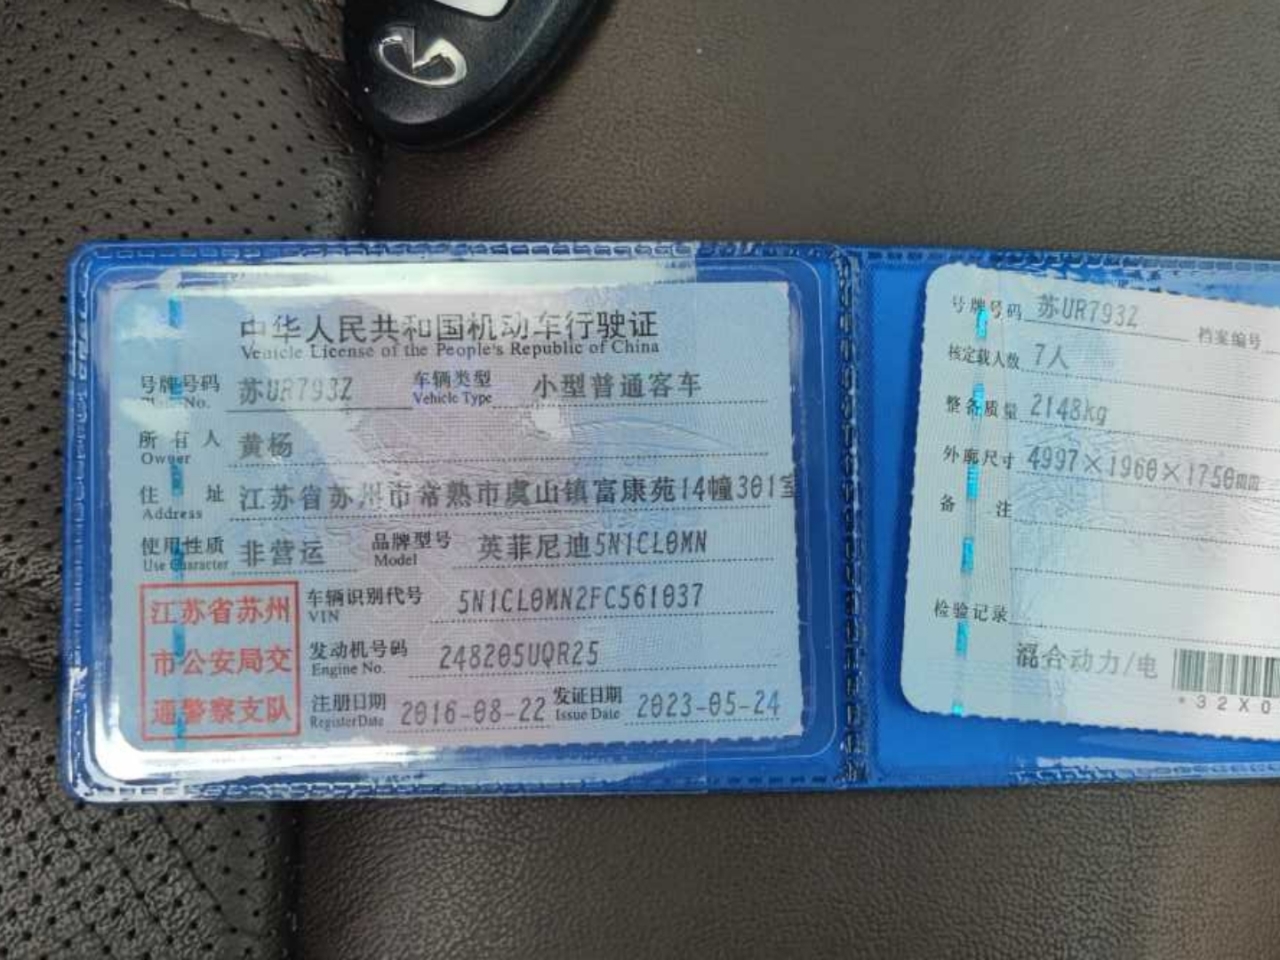 中华人民共和国机动车行驶证
Vehicle License of the People's Republic of China
号牌号码 苏UR793Z 车辆类型 小型普通客车
No. Vehicle Type
所有人 黄杨
Owner
住址 江苏省苏州市常熟市虞山镇富康苑14幢301室
Address
使用性质 非营运 品牌型号 英菲尼迪5N1CL0MN
Use Character Model
江苏省苏州
市公安局交
通警察支队
车辆识别代号 5N1CL0MN2FC561037
VIN
发动机号码 248205UQR25
Engine No.
注册日期 2016-08-22 发证日期 2023-05-24
Register Date Issue Date
号牌号码 苏UR793Z 档案编号
核定载人数 7人
整备质量 2148kg
外廓尺寸 4997×1960×1750mm
备注
检验记录
混合动力/电
*32X0